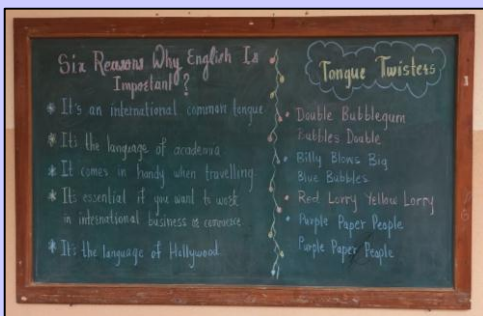 Six Reasons Why English Is
Important ?
* It's an international common tongue
* It's the language of academia
* It comes in handy when travelling
* It's essential if you want to work
in international business or commerce
* It's the language of Hollywood
Tongue Twisters
• Double Bubblegum
Bubbles Double
• Billy Blows Big
Blue Bubbles
• Red Lorry Yellow Lorry
• Purple Paper People
Purple Paper People